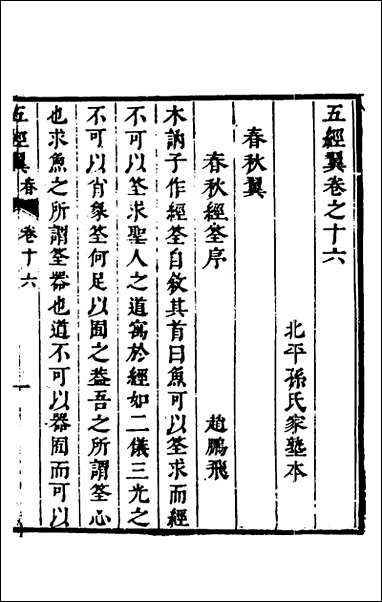 五經翼卷之十六
北平孫氏家塾本
春秋翼
春秋經筌序 趙鵬飛
木訥子作經筌自敘其首曰魚可以筌求而經
不可以筌求聖人之道寓於經如二儀三光之
不可以肖象筌何足以囿之葢吾之所謂筌心
也求魚之所謂筌器也道不可以器囿而可以
五經翼 春 卷十六 一